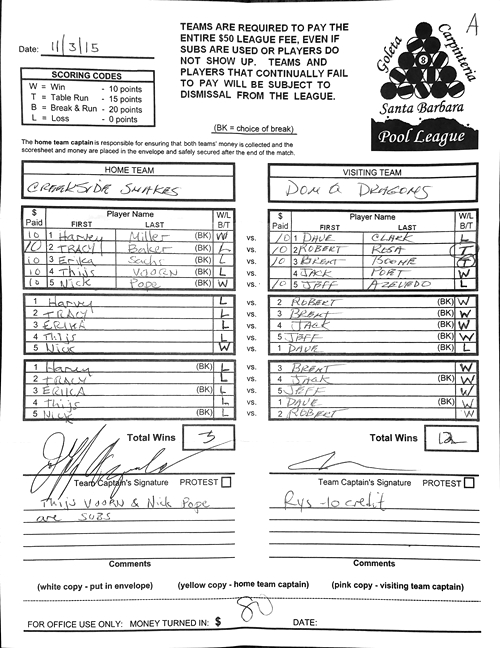 Date: 11/3/15
TEAMS ARE REQUIRED TO PAY THE
ENTIRE $50 LEAGUE FEE, EVEN IF
SUBS ARE USED OR PLAYERS DO
NOT SHOW UP. TEAMS AND
PLAYERS THAT CONTINUALLY FAIL
TO PAY WILL BE SUBJECT TO
DISMISSAL FROM THE LEAGUE.
A
Goleta Carpinteria
8
Santa Barbara
Pool League
SCORING CODES
W = Win - 10 points
T = Table Run - 15 points
B = Break & Run - 20 points
L = Loss - 0 points
(BK = choice of break)
The home team captain is responsible for ensuring that both teams' money is collected and the
scoresheet and money are placed in the envelope and safely secured after the end of the match.
HOME TEAM VISITING TEAM
CREEKSIDE SNAKES DOM Q DRAGONS
$ Paid Player Name FIRST LAST W/L B/T $ Paid Player Name FIRST LAST W/L B/T
10 1 Harvey Miller (BK) W vs. 10 1 DAVE CLARK L
10 2 TRACY Baker L vs. 10 2 ROBERT ROSA (BK) T
10 3 Erika Sachs (BK) L vs. 10 3 BRENT BOONE T
10 4 Thijs VOORN L vs. 4 JACK (BK) W
10 5 Nick Pope (BK) W vs. 10 5 JEFF AZEVEDO L
1 Harvey L vs. 2 ROBERT (BK) W
2 TRACY L vs. 3 BRENT (BK) W
3 ERIKA L vs. 4 JACK (BK) W
4 Thijs L vs. 5 JEFF (BK) W
5 Nick W vs. 1 DAVE (BK) L
1 Harvey (BK) L vs. 3 BRENT W
2 TRACY L vs. 4 JACK (BK) W
3 ERIKA (BK) L vs. 5 JEFF W
4 Thijs L vs. 1 DAVE (BK) W
5 Nick (BK) L vs. 2 ROBERT W
Total Wins 3 Total Wins 12
Team Captain's Signature PROTEST Team Captain's Signature PROTEST
Thijs VOORN & Nick Pope
are SUBS
Rys -10 credit
Comments Comments
(white copy - put in envelope) (yellow copy - home team captain) (pink copy - visiting team captain)
FOR OFFICE USE ONLY: MONEY TURNED IN: $ 80 DATE: